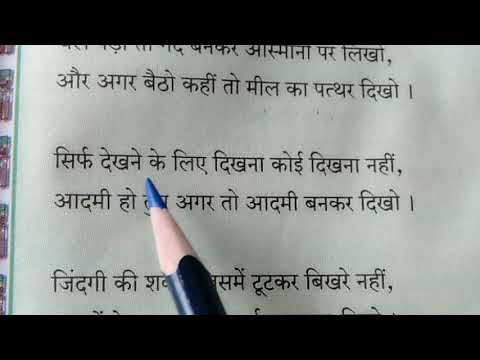 बनकर आस्मानों पर लिखो,
और अगर बैठो कहीं तो मील का पत्थर दिखो ।
सिर्फ देखने के लिए दिखना कोई दिखना नहीं,
आदमी हो अगर तो आदमी बनकर दिखो ।
जिंदगी की टूटकर बिखरे नहीं,